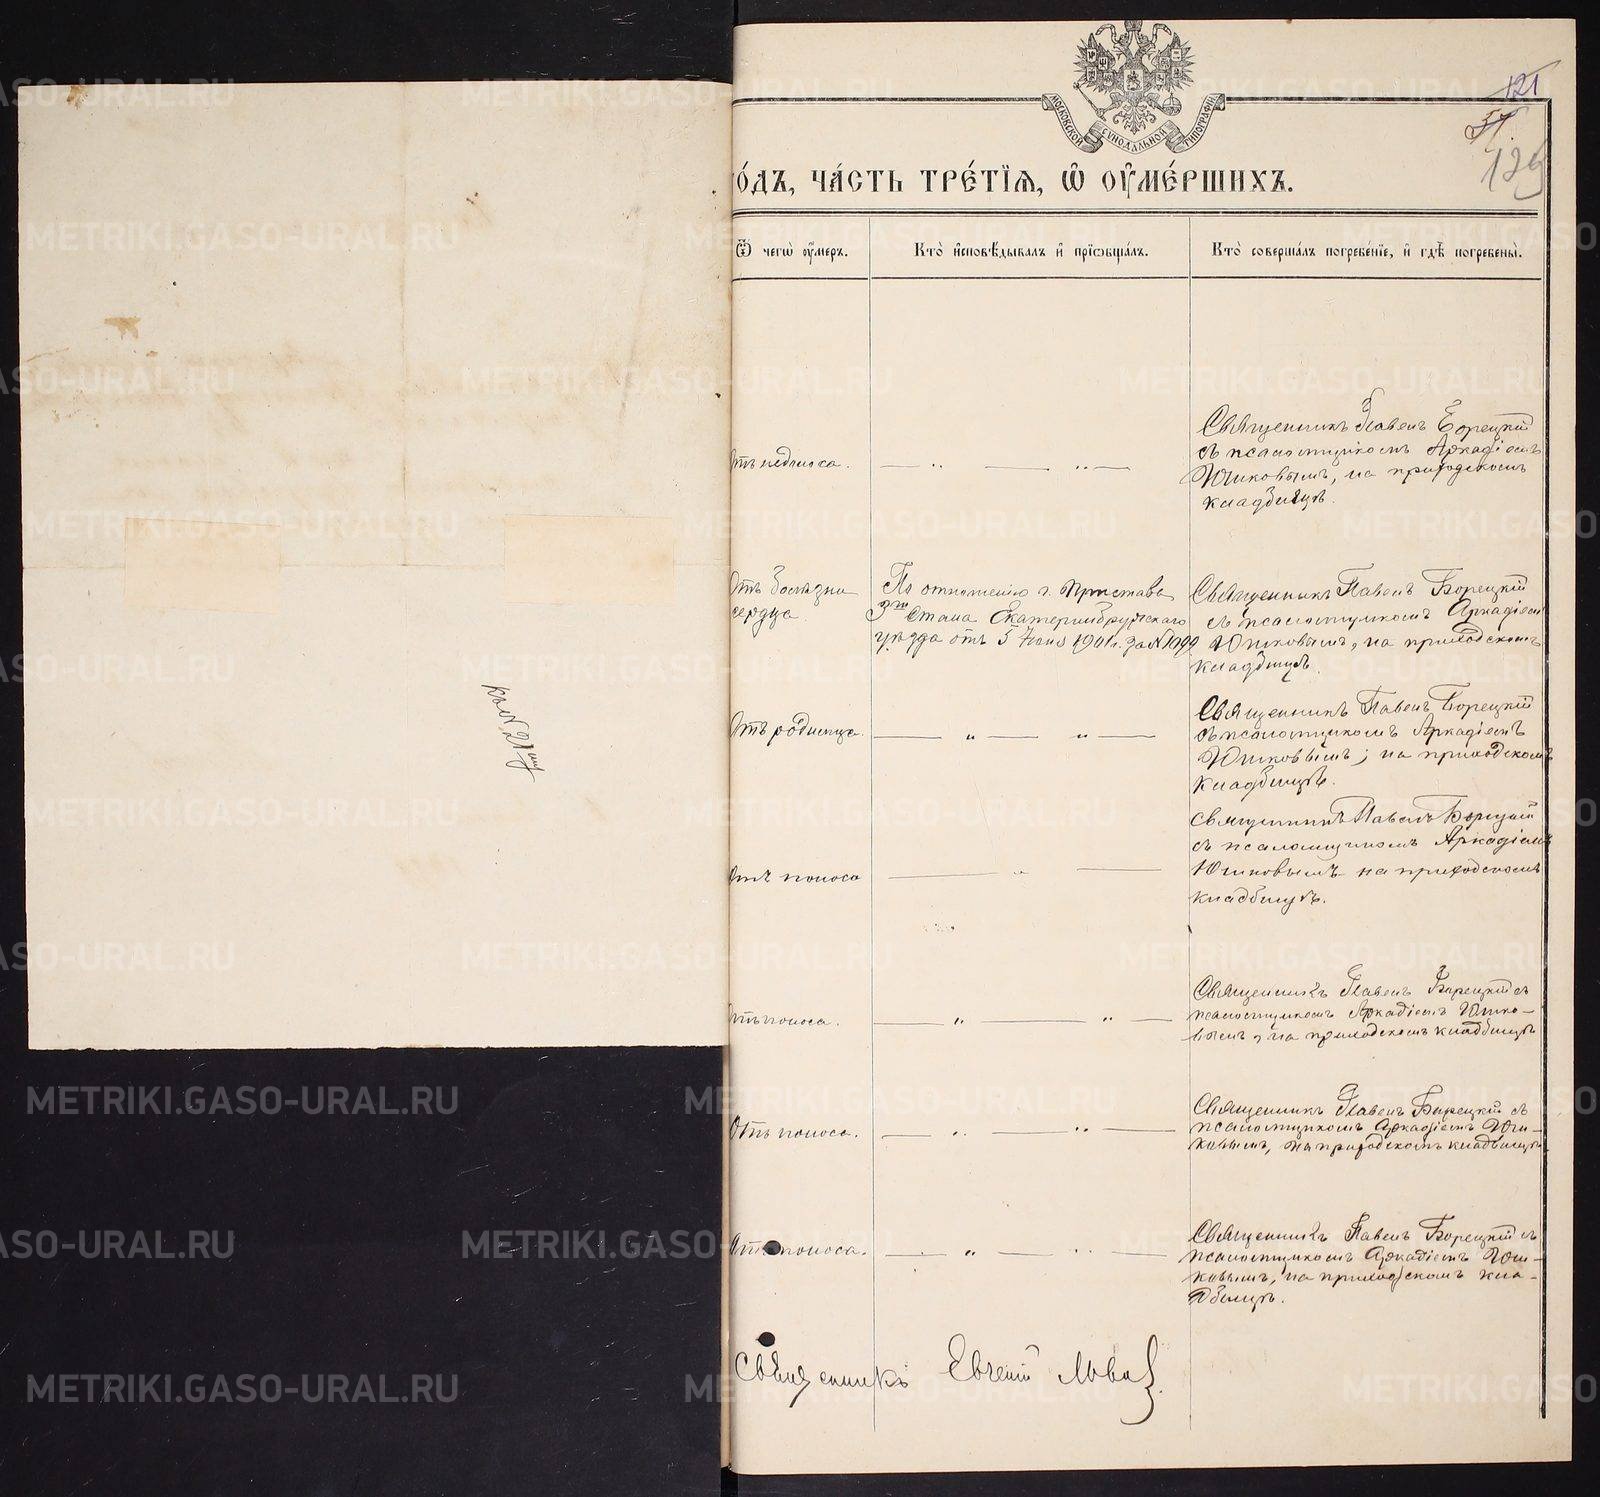 МОСКОВСКОЙ СУНОДАЛЬНОЙ ТИПОГРАФІИ
121
57.
129
о́дъ, ча́сть тре́тїѧ, ѡ҆ ᲂу҆ме́ршихъ.
Ѿ чегѡ̀ ᲂу҆́меръ.
Кто̀ и҆сповѣ́дывалъ и҆ прїѡбща́лъ.
Кто̀ соверша́лъ погребе́нїе, и҆ гдѣ̀ погребены̀.
Священникъ Павелъ Борецкій
съ псаломщикомъ Аркадіемъ
Юшковымъ, на приходскомъ
кладбищѣ.
Отъ болѣзни
сердца
По отношенію г. Пристава
3го Стана Екатеринбургскаго
уѣзда отъ 5 Іюня 1901 г. за № 1099
Священникъ Павелъ Борецкій
съ псаломщикомъ Аркадіемъ
Юшковымъ, на приходскомъ
кладбищѣ.
Отъ родимца.
Священникъ Павелъ Борецкій
съ псаломщикомъ Аркадіемъ
Юшковымъ, на приходскомъ
кладбищѣ.
Отъ поноса
Священникъ Павелъ Борецкій
съ псаломщикомъ Аркадіемъ
Юшковымъ на приходскомъ
кладбищѣ.
Отъ поноса.
Священникъ Павелъ Борецкій съ
псаломщикомъ Аркадіемъ Юшко-
вымъ, на приходскомъ кладбищѣ
Отъ поноса.
Священникъ Павелъ Борецкій съ
псаломщикомъ Аркадіемъ Юш-
ковымъ, на приходскомъ кладбищѣ
Отъ поноса.
Священникъ Павелъ Борецкій съ
псаломщикомъ Аркадіемъ Юш-
ковымъ, на приходскомъ кла-
дбищѣ.
Священникъ Евгеній Львовъ
METRIKI.GASO-URAL.RU